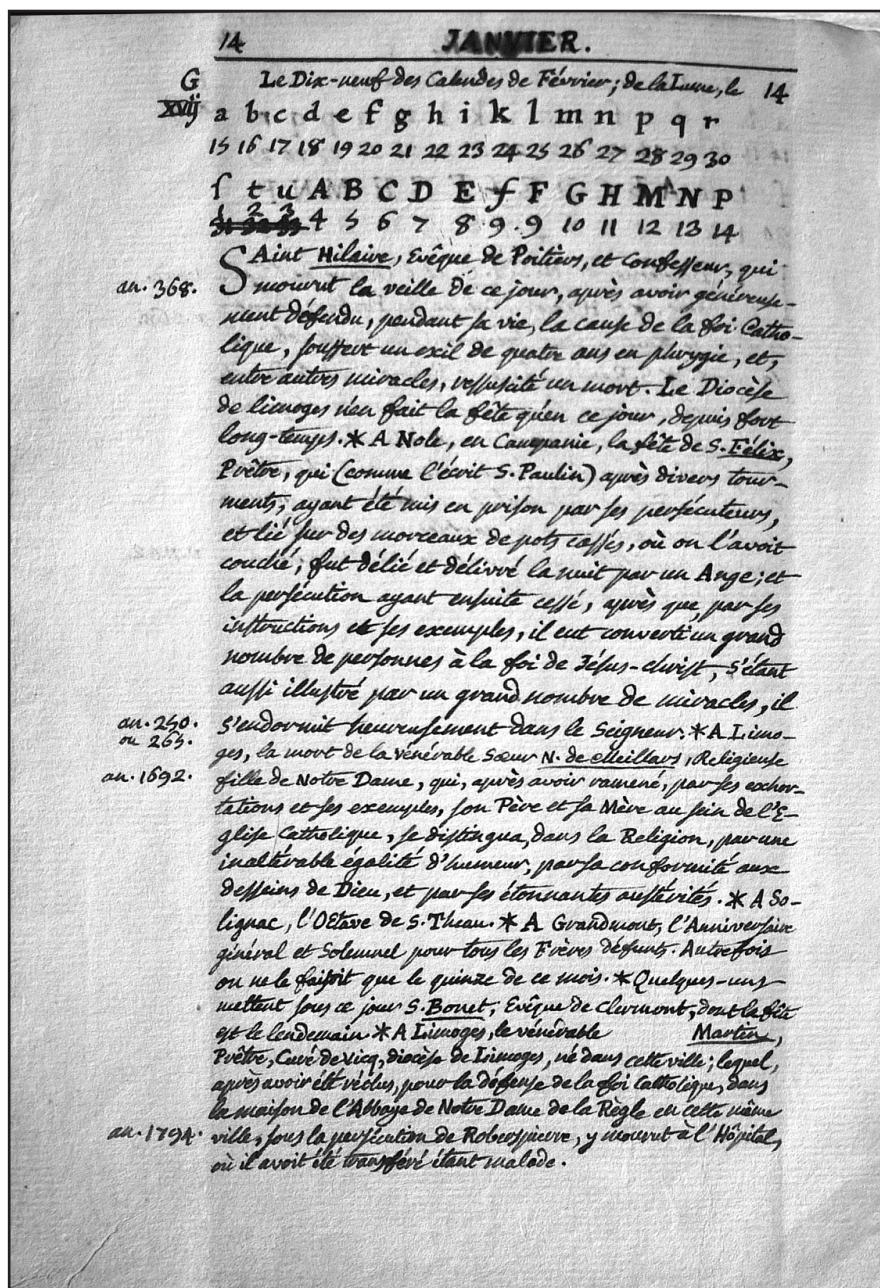 14 JANVIER.
G Le Dix-neuf des Calendes de Février; de la Lune, le 14
xvij a b c d e f g h i k l m n p q r
15 16 17 18 19 20 21 22 23 24 25 26 27 28 29 30
ſ t u A B C D E f F G H M N P
1 2 3 4 5 6 7 8 9 . 9 10 11 12 13 14
SAint Hilaire, Evêque de Poitiers, et Confeſſeur, qui
an. 368. mourut la veille de ce jour, après avoir généreuſe-
ment défendu, pendant ſa vie, la cauſe de la foi Catho-
lique, ſouffert un exil de quatre ans en phrygie, et,
entre autres miracles, reſſuſcité un mort. Le Diocèſe
de limoges n'en fait la fête qu'en ce jour, depuis fort
long-temps. * A Nole, en Campanie, la fête de S. Félix,
Prêtre, qui (comme l'écrit S. Paulin) après divers tour-
ments, ayant été mis en priſon par ſes perſécuteurs,
et lié ſur des morceaux de pots caſſés, où on l'avoit
couché; fut délié et délivré la nuit par un Ange; et
la perſécution ayant enſuite ceſſé, après que, par ſes
inſtructions et ſes exemples, il eut converti un grand
nombre de perſonnes à la foi de Jéſus-chriſt, s'étant
auſſi illuſtré par un grand nombre de miracles, il
an. 250. s'endormit heureuſement dans le Seigneur. * A Limo-
ou 265. ges, la mort de la vénérable Sœur N. de Meillars, Religieuſe
an. 1692. fille de Notre Dame, qui, après avoir ramené, par ſes exhor-
tations et ſes exemples, ſon Père et ſa Mère au ſein de l'E-
gliſe Catholique, ſe diſtingua, dans la Religion, par une
inaltérable égalité d'humeur, par ſa conformité aux
deſſeins de Dieu, et par ſes étonnantes auſtérités. * A So-
lignac, l'Octave de S. Theau. * A Grandmont, l'Anniverſaire
général et Solemnel pour tous les Frères défunts. Autrefois
on ne le faiſoit que le quinze de ce mois. * Quelques-uns
mettent ſous ce jour S. Bonet, Evêque de Clermont, dont la fête
eſt le lendemain * A Limoges, le vénérable Martin,
Prêtre, Curé de Vicq, diocèſe de Limoges, né dans cette ville; lequel,
après avoir été réclus, pour la défenſe de la foi Catholique, dans
la maiſon de l'Abbaye de Notre Dame de la Règle en cette même
an. 1794. ville, ſous la perſécution de Robeſpierre, y mourut à l'Hôpital,
où il avoit été tranſféré étant malade.